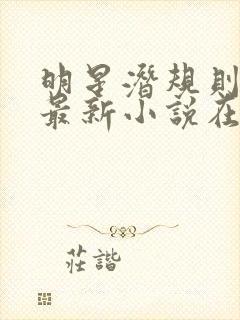 明星潛規則
最新小說在
莊諧